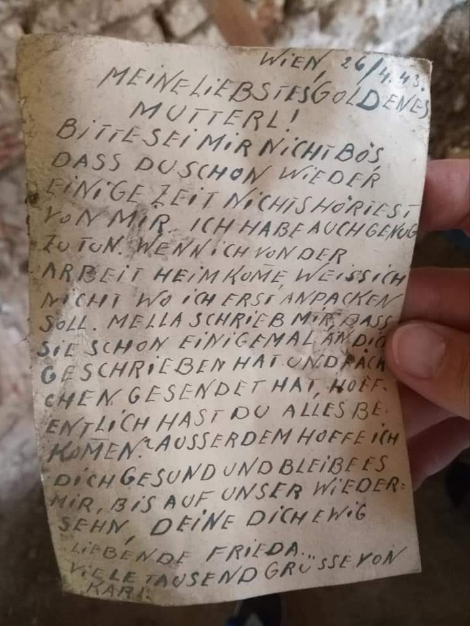 WIEN, 26/4.43.
MEINE LIEBSTES GOLDENES
MUTTERL!
BITTE SEI MIR NICHT BÖS
DASS DU SCHON WIEDER
EINIGE ZEIT NICHTS HÖRTEST
VON MIR. ICH HABE AUCH GENUG
ZU TUN. WENN ICH VON DER
ARBEIT HEIM KOME, WEISS ICH
NICHT WO ICH ERST ANPACKEN
SOLL. MELLA SCHRIEB MIR, DASS
SIE SCHON EINIGEMAL AN DICH
GESCHRIEBEN HAT UND PÄCK
CHEN GESENDET HAT, HOFF-
ENTLICH HAST DU ALLES BE-
KOMEN? AUSSERDEM HOFFE ICH
DICH GESUND UND BLEIBE ES
MIR, BIS AUF UNSER WIEDER=
SEHN, DEINE DICH EWIG
LIEBENDE FRIEDA...
VIELE TAUSEND GRÜSSE VON
KARL.